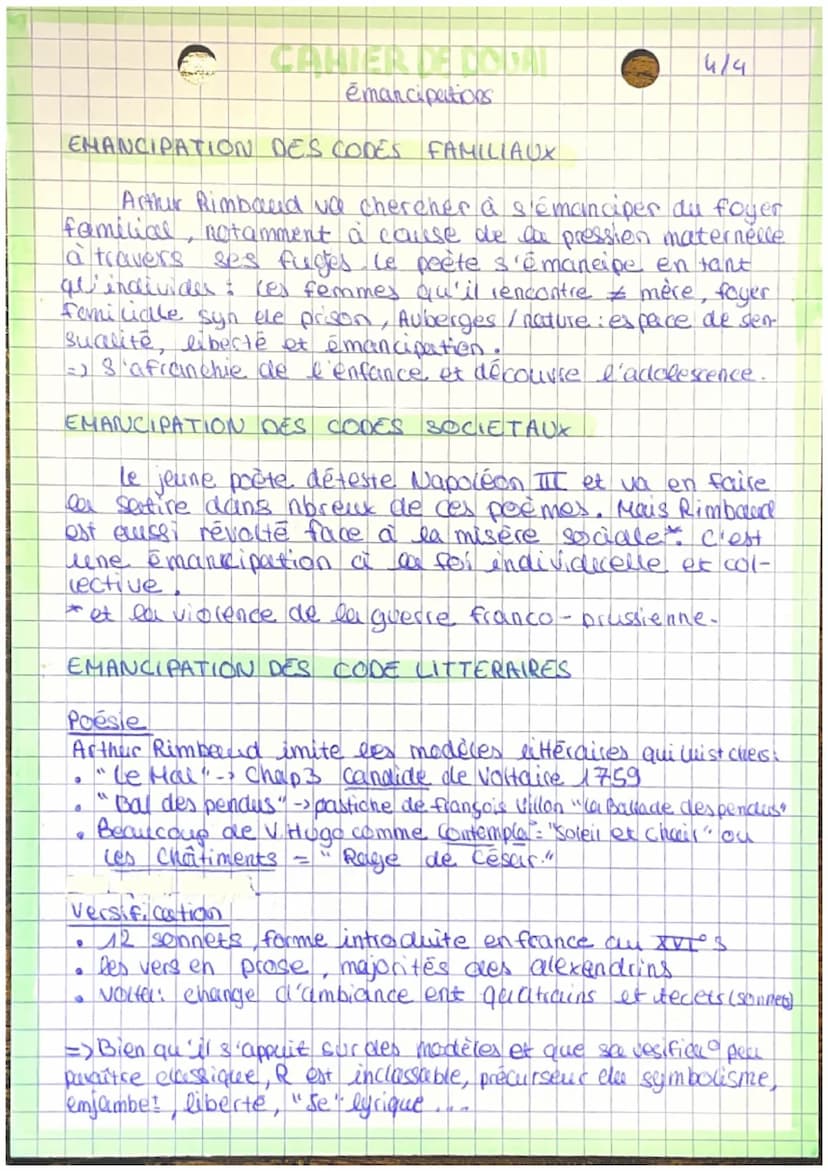 CAHIER DE DOUAI
4/4
émancipations
EMANCIPATION DES CODES FAMILIAUX
Arthur Rimbaud va chercher à s'émanciper du foyer
familial, notamment à cause de la pression maternelle
à travers ses fugues. Le poète s'émancipe en tant
qu'individu : les femmes qu'il rencontre ≠ mère, foyer
familiale syn de prison, Auberges / nature : espace de sen-
sualité, liberté et émancipation.
=> S'afranchie de l'enfance et découvre l'adolescence.
EMANCIPATION DES CODES SOCIETAUX
Le jeune poète déteste Napoléon III et va en faire
la satire dans nbreux de ces poèmes. Mais Rimbaud
est aussi révolté face à la misère sociale*. C'est
une émancipation à la foi individuelle et col-
lective.
* et la violence de la guerre franco-prussienne.
EMANCIPATION DES CODE LITTERAIRES
Poésie
Arthur Rimbaud imite les modèles littéraires qui lui st chers:
• "Le Mal" -> Chap3 Candide de Voltaire 1759
• "Bal des pendus" -> pastiche de françois Villon "La Ballade des pendus"
• Beaucoup de V. Hugo comme Contempla° = "Soleil et Chair" ou
Les Châtiments = "Rage de César."
Versification
• 12 sonnets, forme introduite en france au XVI° s
• Des vers en prose, majorités des alexandrins
• Volta: change d'ambiance ent quatrains et tecets (sonnet)
=> Bien qu'il s'appuit sur des modèles et que sa vesifica° peu
paraître classique, R est inclassable, précurseur du symbolisme,
enjambet, liberté, "Je" lyrique ...